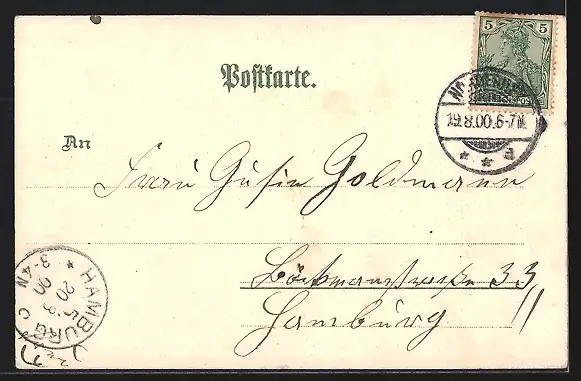 5 5
Postkarte.
19.8.00.6-7N.
* * d
An
Frau Gusie Goldmann
Böckmannstrasse 33
Hamburg II
HAMBURG
20 8 00
3-4N